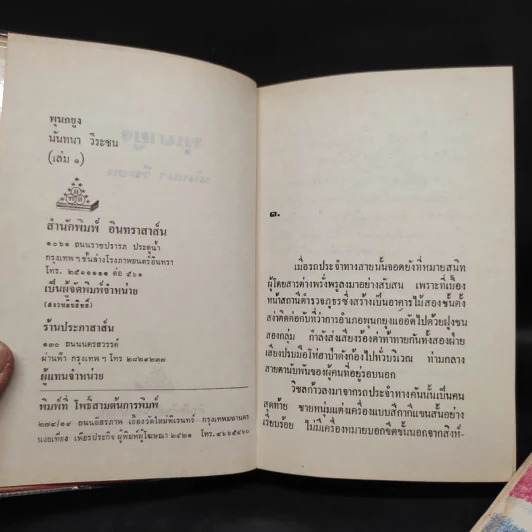 พุนกยูง
นันทนา วีระชน
(เล่ม ๑)
สำนักพิมพ์ อินทราสาส์น
๑๐๖๑ ถนนราชปรารภ ประตูน้ำ
กรุงเทพฯ ชั้นล่างโรงภาพยนตร์อินทรา
โทร. ๒๕๑๑๑๑๑ ต่อ ๕๖๑
เป็นผู้จัดพิมพ์จำหน่าย
(สงวนลิขสิทธิ์)
ร้านประภาสาส์น
๑๓๐ ถนนนครสวรรค์
ผ่านฟ้า กรุงเทพฯ โทร ๒๘๒๙๒๓๗
ผู้แทนจำหน่าย
พิมพ์ที่ โพธิ์สามต้นการพิมพ์
๒๗๔/๑๙ ถนนอิสรภาพ เยื้องวัดใหม่พิเรนทร์ กรุงเทพมหานคร
นายเที่ยง เพียรประกิจ ผู้พิมพ์ผู้โฆษณา ๒๕๒๑ โทร. ๔๖๖๕๔๖๐
๑.
เมื่อรถประจำทางสายนั้นจอดยังที่หมายสนิท
ผู้โดยสารต่างพรั่งพรูลงมาอย่างสับสน เพราะที่เบื้อง
หน้าสถานีตำรวจภูธรซึ่งสร้างเป็นอาคารไม้สองชั้นตั้ง
สง่าติดต่อกับที่ว่าการอำเภอพุนกยูงแออัดไปด้วยฝูงชน
สองกลุ่ม กำลังส่งเสียงร้องด่าท้าทายกันทั้งสองฝ่าย
เสียงปรบมือโห่ฮาป่าดังก้องไปทั่วบริเวณ ท่ามกลาง
สายตานับพันของผู้คนที่อยู่รอบนอก
วิชลก้าวลงมาจากรถประจำทางคันนั้นเป็นคน
สุดท้าย ชายหนุ่มแต่งเครื่องแบบสีกากีแขนสั้นอย่าง
เรียบร้อย ไม่มีเครื่องหมายบอกขีดชั้นนอกจากสิงห์-